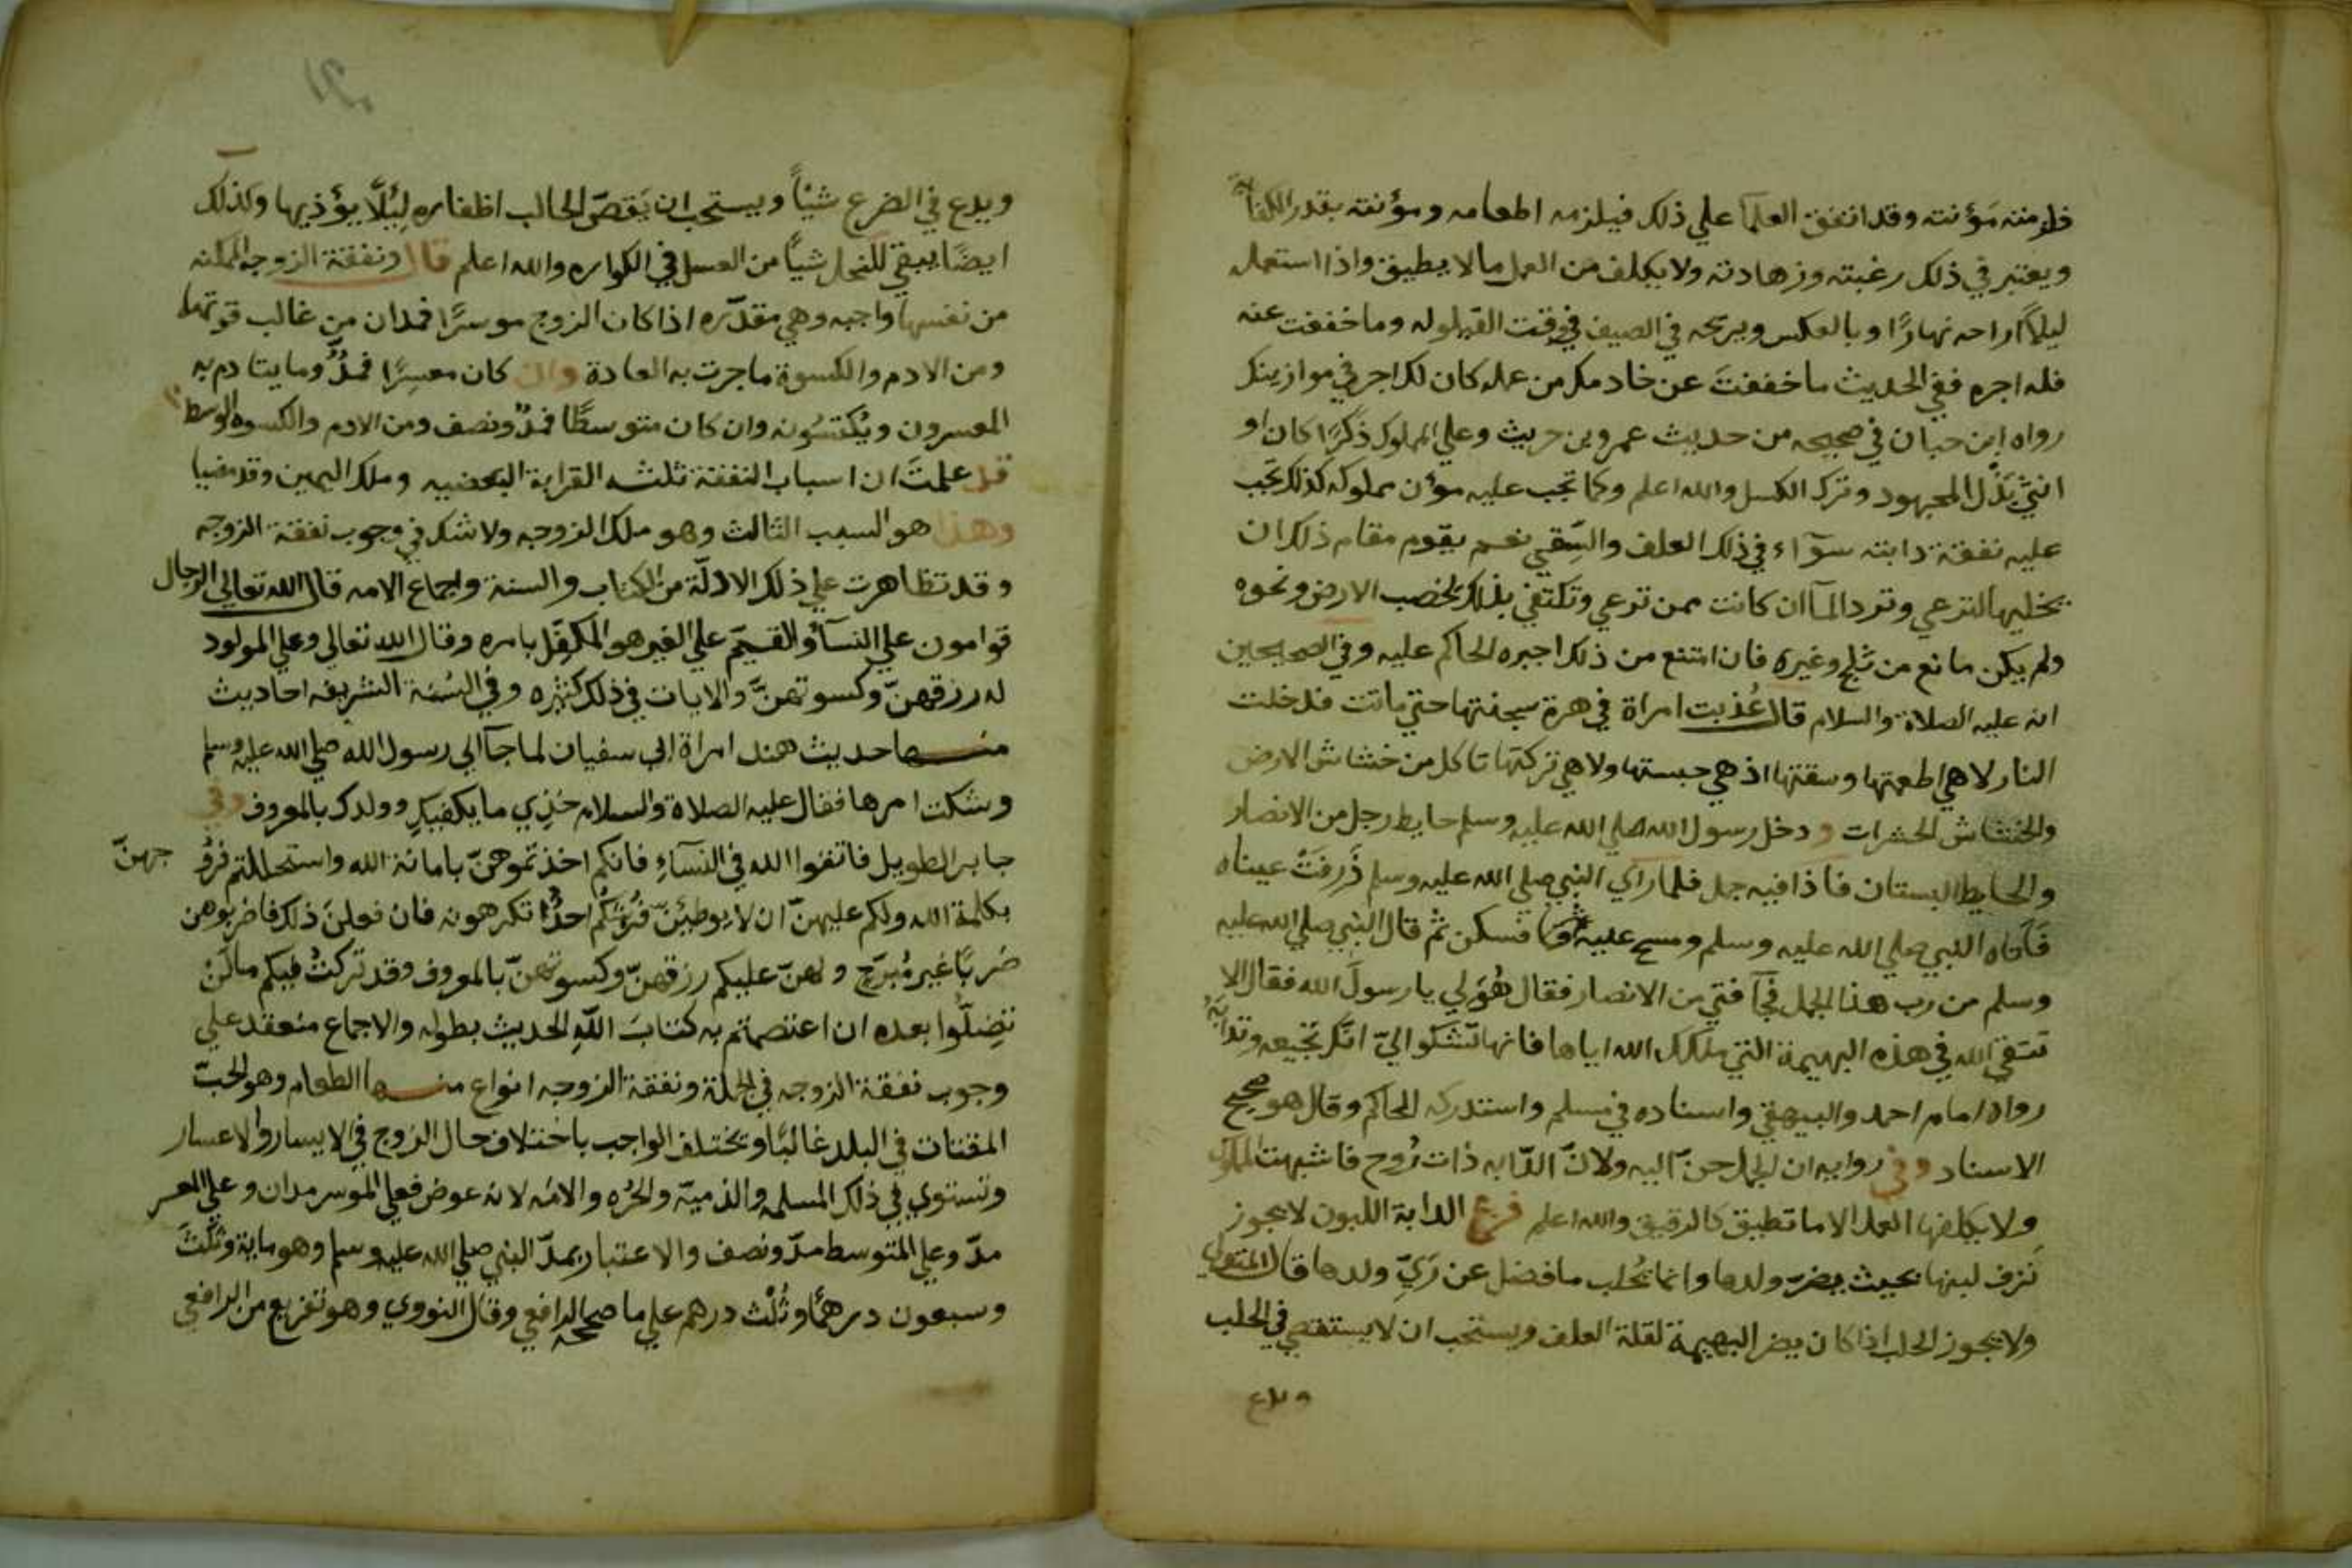 فلزمته مؤنته وقد اتفق العلمآ علي ذلك فيلزمه اطعامه ومؤنته بقدر الكفاية
ويعتبر في ذلك رغبته وزهادته ولا يكلف من العمل مالا يطيق واذا استعمله
ليلاً اراحه نهارًا وبالعكس ويريحه في الصيف في وقت القيلوله وما خففت عنه
فله اجره ففي الحديث ما خففتَ عن خادمك من عمله كان لك اجر في موازينك
رواه ابن حبان في صحيحه من حديث عمرو بن حريث وعلي المملوك ذكرًا كان او
انثي بَذْل المجهود وترك الكسل والله اعلم وكما تجب عليه مؤن مملوكه كذلك تجب
عليه نفقة دابته سوآء في ذلك العلف والسَّقي نعم يقوم مقام ذلك ان
يخليها لترعي وترد المآ ان كانت ممن ترعي وتكتفي بذلك لخصب الارض ونحوه
ولم يكن مانع من ثلج وغيره فان امتنع من ذلك اجبره الحاكم عليه وفي الصحيحين
انه عليه الصلاة والسلام قال عُذبت امراة في هرة سجنتها حتي ماتت فدخلت
النار لا هي اطعمتها وسقتها اذ هي حبستها ولا هي تركتها تاكل من خشاش الارض
والخشاش الحشرات ودخل رسول الله صلي الله عليه وسلم حايط رجل من الانصار
والحايط البستان فاذا فيه جمل فلما راي النبي صلي الله عليه وسلم ذَرفَتْ عيناه
فآتاه النبي صلي الله عليه وسلم ومسح عليه فسكن ثم قال النبي صلي الله عليه
وسلم من رب هذا الجمل فجآ فتي من الانصار فقال هُوَ لي يا رسولَ الله فقال الا
تتقي الله في هذه البهيمة التي ملكك الله اياها فانها تشكوا اليّ انك تجيعه وتدايبه
رواه امام احمد والبيهقي واسناده في مسلم واستدركه الحاكم وقال هو صحيح
الاسناد وفي روايه ان الجمل حنّ اليه ولانّ الدّابه ذات رُوح فاشبهت المملوك
ولا يكلفها العمل الا ما تطيق كالرقيق والله اعلم فرع الدابة اللبون لا يجوز
نزف لبنها بحيث يضرّ ولدها وانما يُحلب ما فضل عن رَيّ ولدها قال المتولي
ولا يجوز الحلب اذا كان يضر البهيمة لقلة العلف ويستحب ان لا يستقصي في الحلب
ويدع
ويدع في الضرع شيئاً ويستحب ان يَقصّ الحالب اظفاره لِئلّا يؤذيها وكذلك
ايضًا يبقي للنحل شيأً من العسل في الكواره والله اعلم قال ونفقة الزوجه الممكنه
من نفسها واجبه وهي مقدّره اذا كان الزوج موسرًا فمدان من غالب قوتها
ومن الادم والكسوة ما جرت به العادة وان كان معسِرًا فمدُّ وما يتادم به
المعسرون ويُكتسُونه وان كان متوسطًا فمدّ ونصف ومن الادم والكسوه الوسط
قد علمتَ ان اسباب النفقة ثلثه القرابة البعضيه وملك اليمين وقد مضيا
وهذا هو السبب الثالث وهو ملك الزوجيه ولا شك في وجوب نفقة الزوجه
وقد تظاهرت علي ذلك الادلّة من الكتاب والسنة واجماع الامه قال الله تعالي الرجال
قوامون علي النسآ والقَيِّم علي الغير هو المكفل بامره وقال الله تعالي وعلي المولود
له رزقهنّ وكسوتهنَّ والايات في ذلك كثيره وفي السُنة الشريفه احاديث
منها حديث هند امراة ابي سفيان لما جآ الي رسول الله صلي الله عليه وسلم
وشكت امرها فقال عليه الصلاة والسلام خذِي ما يكفيكِ وولدك بالمعروف وفي
جابر الطويل فاتقوا الله في النسآءِ فانكم اخذتموهنّ بامانة الله واستحللتم فرو جهنّ
بكلمة الله ولكم عليهنّ ان لا يوطينَ فُرُشكُم احدًا تكرهونه فان فعلنَ ذلك فاضربوهن
ضربًا غير مُبرّح ولهنّ عليكم رزقهنّ وكسوتهنّ بالمعروف وقد تركتُ فيكم ما لَنْ
تضِلُّوا بعده ان اعتصمتم به كتابَ اللّهِ الحديث بطوله والاجماع منعقد علي
وجوب نفقة الزوجه في الجملة ونفقة الزوجه انواع منها الطعام وهو الحبّ
المقتات في البلد غالبًا ويختلف الواجب باختلاف حال الزوج في الايسار والاعسار
وتستوي في ذلك المسلمه والذميّة والحُرّه والامه لانه عوض فعلي الموسر مدان وعلي المعسر
مدّ وعلي المتوسط مدّ ونصف والاعتبار بمدّ النبي صلي الله عليه وسلم وهو ماية وثلثَ
وسبعون درهمًا وثُلْث درهم علي ما صححه الرافعي وقال النووي وهو تفريع من الرافعي